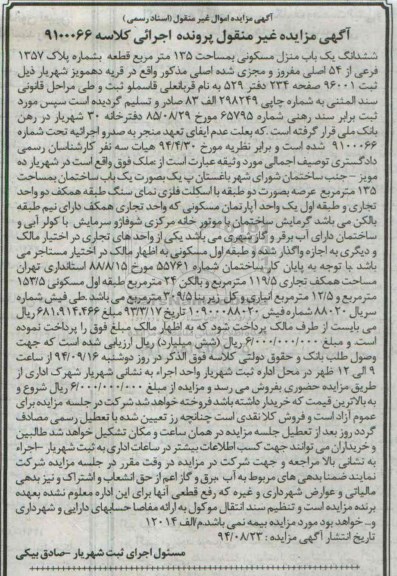 آگهی مزایده اموال غیر منقول (اسناد رسمی)
آگهی مزایده غیر منقول پرونده اجرائی کلاسه ۹۱۰۰۰۶۶
ششدانگ یک باب منزل مسکونی بمساحت ۱۳۵ متر مربع قطعه بشماره پلاک ۱۳۵۷
فرعی از ۵۴ اصلی مفروز و مجزی شده اصلی مذکور واقع در قریه دهمویز شهریار ذیل
ثبت ۹۶۰۰۱ صفحه ۲۳۴ دفتر ۵۲۹ به نام قربانعلی قاسملو ثبت و طی مراحل قانونی
سند المثنی به شماره چاپی ۲۹۸۲۴۹ الف ۸۳ صادر و تسلیم گردیده است سپس مورد
ثبت برابر سند رهنی شماره ۶۵۷۹۵ مورخ ۸۵/۰۸/۲۹ دفترخانه ۳۰ شهریار در رهن
بانک ملی قرار گرفته است .که بعلت عدم ایفای تعهد منجر به صدرو اجرائیه تحت شماره
۹۱۰۰۰۶۶ شده است و برابر نظریه مورخ ۹۴/۴/۳۰ هیات سه نفر کارشناسان رسمی
دادگستری توصیف اجمالی مورد وثیقه عبارت است از ملک فوق واقع است در شهریار ده
مویز – جنب ساختمان شورای شهر باغستان پ یک بصورت یک باب ساختمان بمساحت
۱۳۵ مترمربع عرصه بصورت دو طبقه با اسکلت فلزی نمای سنگ طبقه همکف دو واحد
تجاری و طبقه اول یک واحد آپارتمان مسکونی که واحد تجاری همکف دارای نیم طبقه
بالکن می باشد گرمایش ساختمان با موتور خانه مرکزی شوفاژو سرمایش با کولر آبی و
ساختمان دارای آب برق و گاز شهری می باشد یکی از واحد های تجاری در اختیار مالک
و دیگری به اجازه واگذار شده و طبقه اول مسکونی به اظهار مالک در اختیار مستاجر می
باشد .با توجه به پایان کار ساختمان شماره ۵۵۷۶۱ مورخ ۸۸/۸/۱۵ استانداری تهران
مساحت همکف تجاری ۱۱۹/۵ مترمربع و بالکن ۲۴ مترمربع طبقه اول مسکونی ۱۵۳/۵
مترمربع و ۱۲/۵ مترمربع انباری و کل زیر بنا ۳۰۹/۵ مترمربع می باشد .طی فیش شماره
سریال ۸۸۰۲۰ شماره فیش ۱۰۹۰۰۰۸۸۰۲۰ تاریخ ۹۳/۳/۱۷ مبلغ ۶۸۱,۹۱۴,۴۶۶ ریال
می بایست از طرف مالک پرداخت شود که به اظهار مالک مبلغ فوق را پرداخت نموده
است. و مبلغ ۶/۰۰۰/۰۰۰/۰۰۰ ریال (شش میلیارد) ریال ارزیابی شده است که جهت
وصول طلب بانک و حقوق دولتی کلاسه فوق الذکر در روز دوشنبه ۹۴/۰۹/۱۶ از ساعت
۹ الی ۱۲ ظهر در محل اداره ثبت شهریار واحد اجراء به نشانی شهریار شهرک اداری از
طریق مزایده حضوری بفروش می رسد و مزایده از مبلغ ۶/۰۰۰/۰۰۰/۰۰۰ ریال شروع و
به بالاترین قیمت که خریدار داشته باشد فروخته خواهد شد شرکت در جلسه مزایده برای
عموم آزاد است و فروش کلا نقدی است چنانچه روز تعیین شده با تعطیل رسمی مصادف
گردد روز بعد از تعطیل جلسه مزایده در همان ساعت و مکان تشکیل خواهد شد طالبین
و خریداران می توانند جهت کسب اطلاعات بیشتر در ساعات اداری به ثبت شهریار –اجراء
به نشانی بالا مراجعه و جهت شرکت در مزایده در وقت مقرر در جلسه مزایده شرکت
نمایند ضمنا بدهی های مربوط به آب ،برق و گاز اعم از حق انشعاب و اشتراک و نیز بدهی
مالیاتی و عوارض شهرداری و غیره که رفع قطعی آنها برای این اداره معلوم نشده بعهده
برنده مزایده است و تنظیم سند انتقال موکول به ارائه مفاصا حسابهای دارایی و شهرداری
و... خواهد بود مورد مزایده بیمه نمی باشد.م/الف ۱۲۰۱۴
تاریخ انتشار آگهی مزایده : ۹۴/۰۸/۲۳
مسئول اجرای ثبت شهریار –صادق بیکی